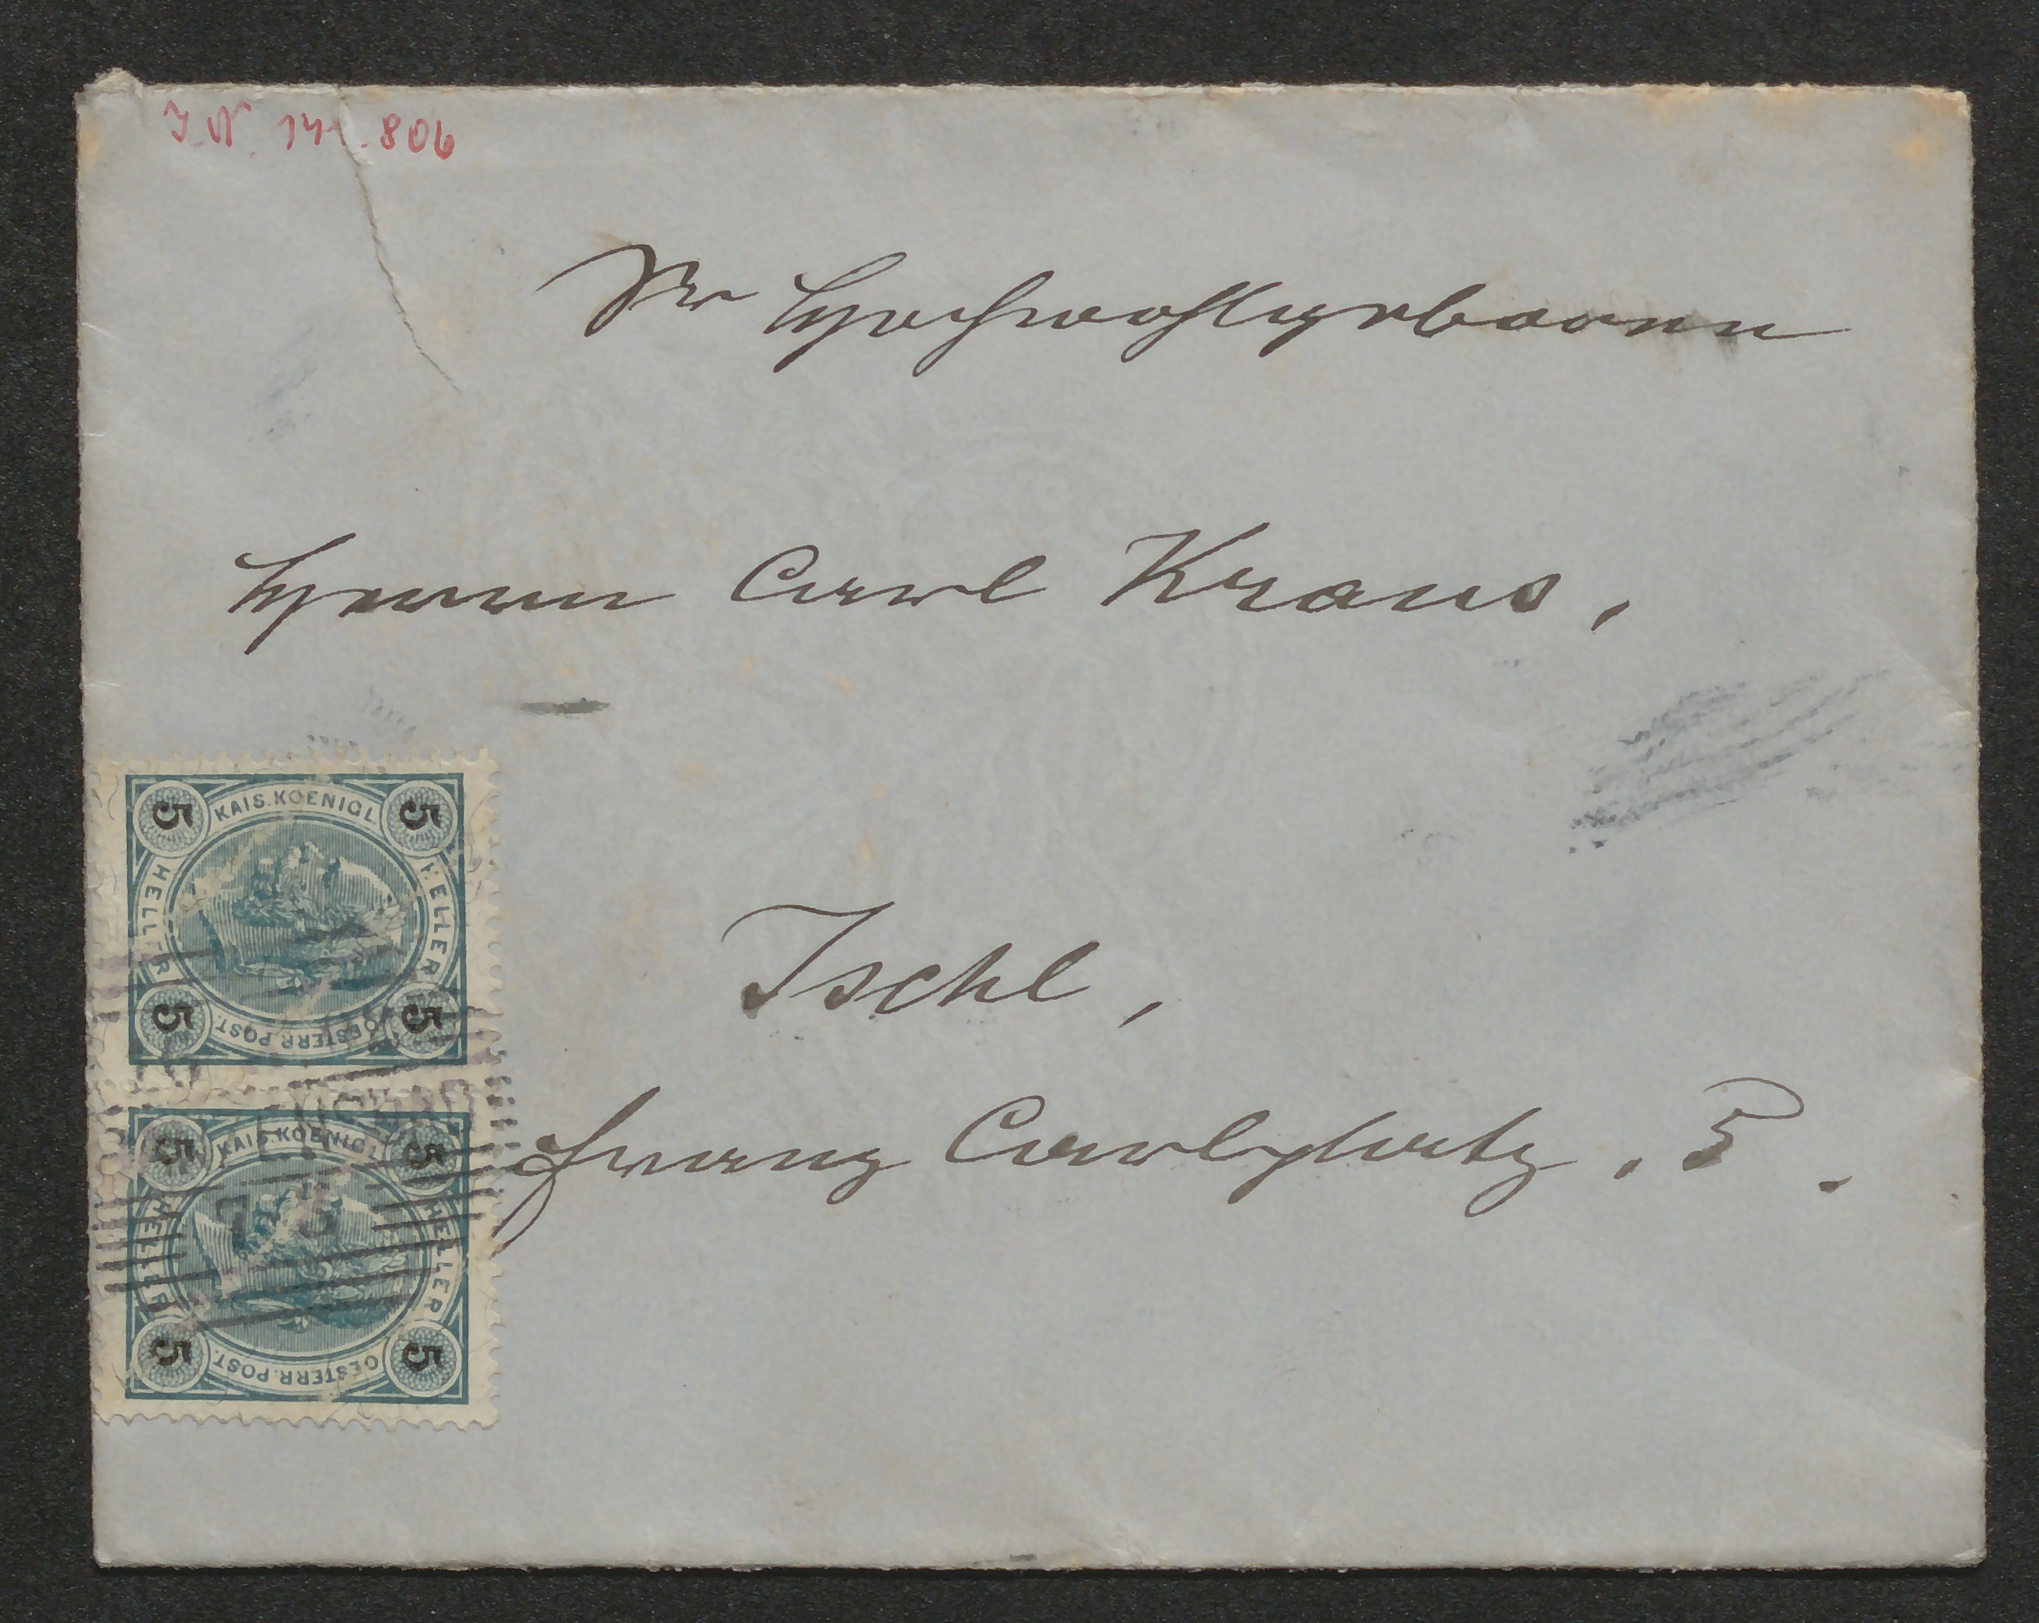 I.N. 141.806
Sr Hochwohlgeboren
Herrn Carl Kraus,
Ischl,
Franz Carlplatz. 5.
KAIS. KOENIGL.
HELLER
HELLER
OESTERR. POST.
5
5
5
5
KAIS. KOENIGL.
HELLER
HELLER
OESTERR. POST.
5
5
5
5